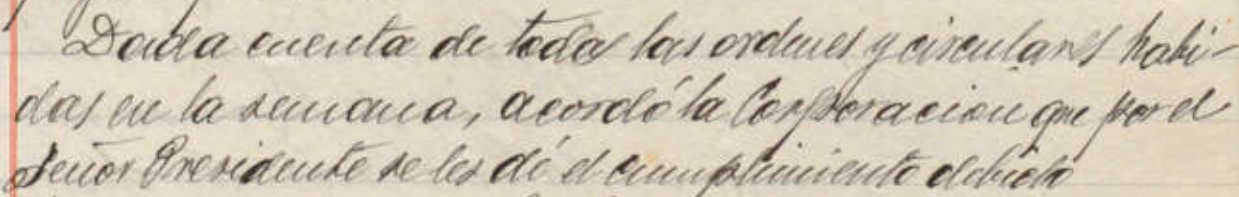 Dada cuenta de todas las ordenes y circulares habi-
das en la semana, acordó la Corporacion que por el
Señor Presidente se les dé el cumplimiento debido